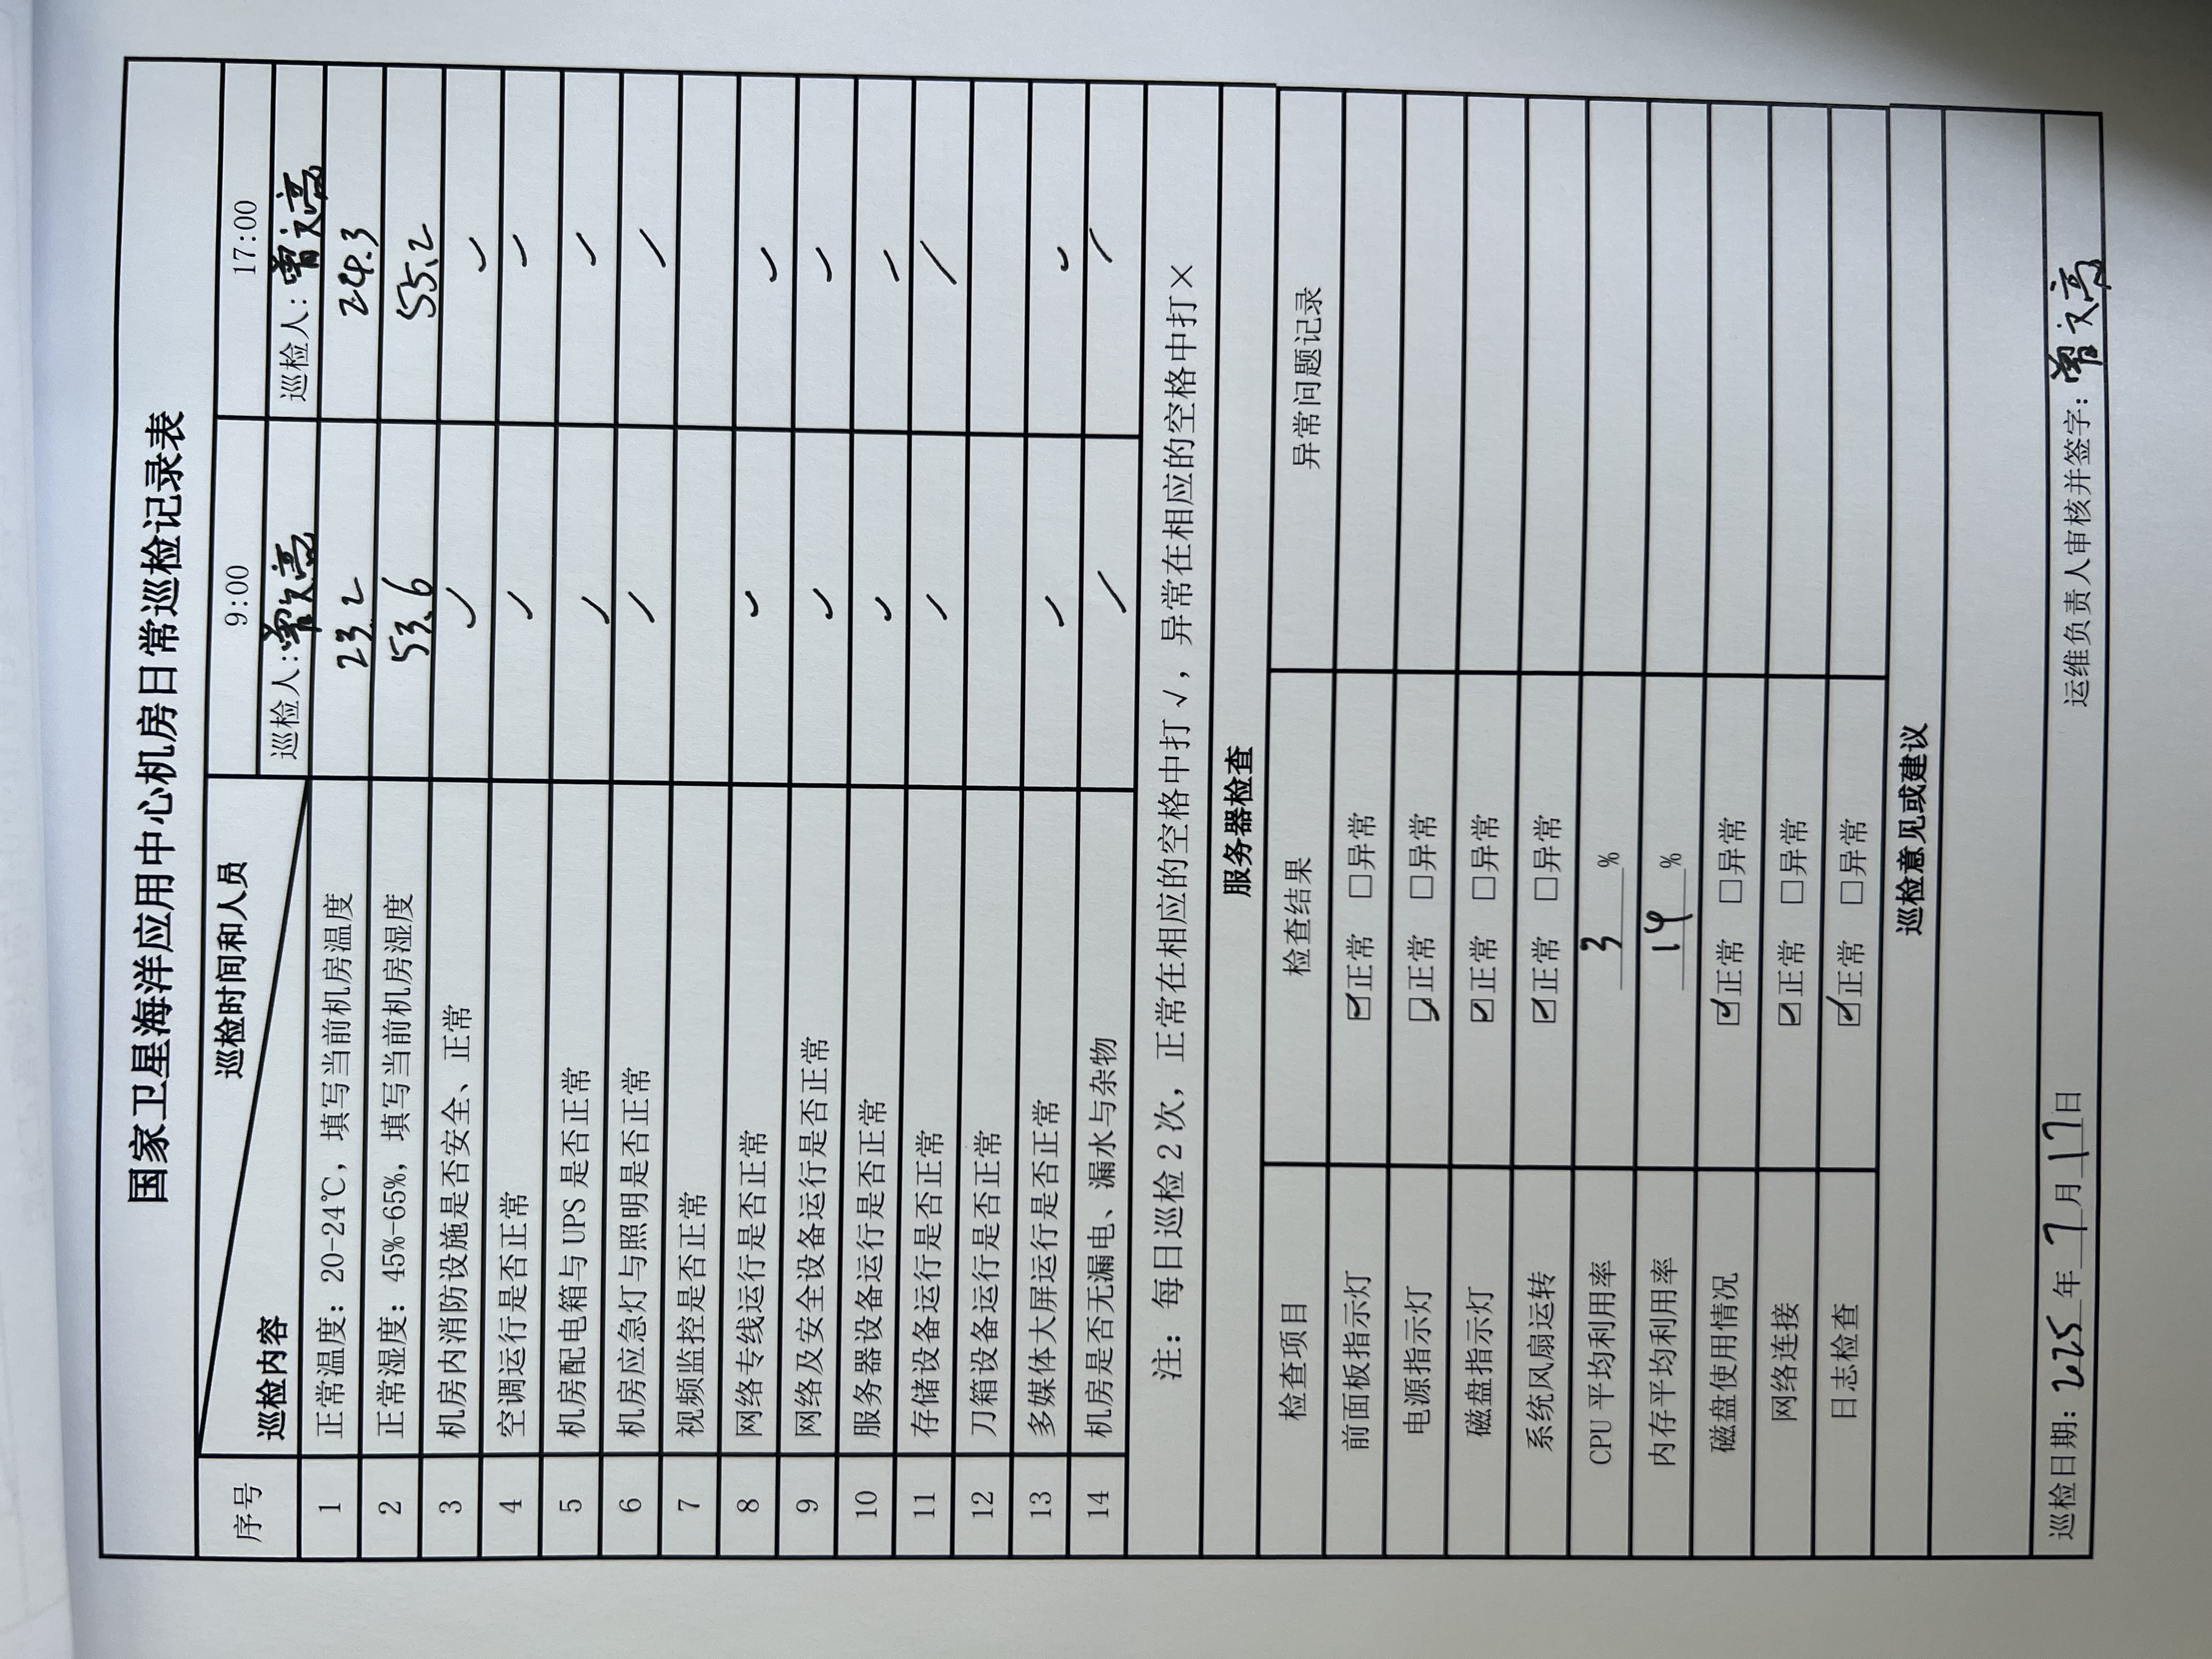 国家卫星海洋应用中心机房日常巡检记录表
序号 巡检内容 巡检时间和人员 9:00 17:00
巡检人:曾文亮 巡检人:曾文亮
1 正常温度：20-24℃，填写当前机房温度 23.2 24.3
2 正常湿度：45%-65%，填写当前机房湿度 53.6 55.2
3 机房内消防设施是否安全、正常 ✓ ✓
4 空调运行是否正常 ✓ ✓
5 机房配电箱与 UPS 是否正常 ✓ ✓
6 机房应急灯与照明是否正常 ✓ ✓
7 视频监控是否正常
8 网络专线运行是否正常 ✓ ✓
9 网络及安全设备运行是否正常 ✓ ✓
10 服务器设备运行是否正常 ✓ ✓
11 存储设备运行是否正常 ✓ ✓
12 刀箱设备运行是否正常
13 多媒体大屏运行是否正常 ✓ ✓
14 机房是否无漏电、漏水与杂物 ✓ ✓
注：每日巡检 2 次，正常在相应的空格中打 √，异常在相应的空格中打×
服务器检查
检查项目 检查结果 异常问题记录
前面板指示灯 ☑正常 □异常
电源指示灯 ☑正常 □异常
磁盘指示灯 ☑正常 □异常
系统风扇运转 ☑正常 □异常
CPU 平均利用率 3 %
内存平均利用率 14 %
磁盘使用情况 ☑正常 □异常
网络连接 ☑正常 □异常
日志检查 ☑正常 □异常
巡检意见或建议
巡检日期：2025 年 7 月 17 日 运维负责人审核并签字：曾文亮